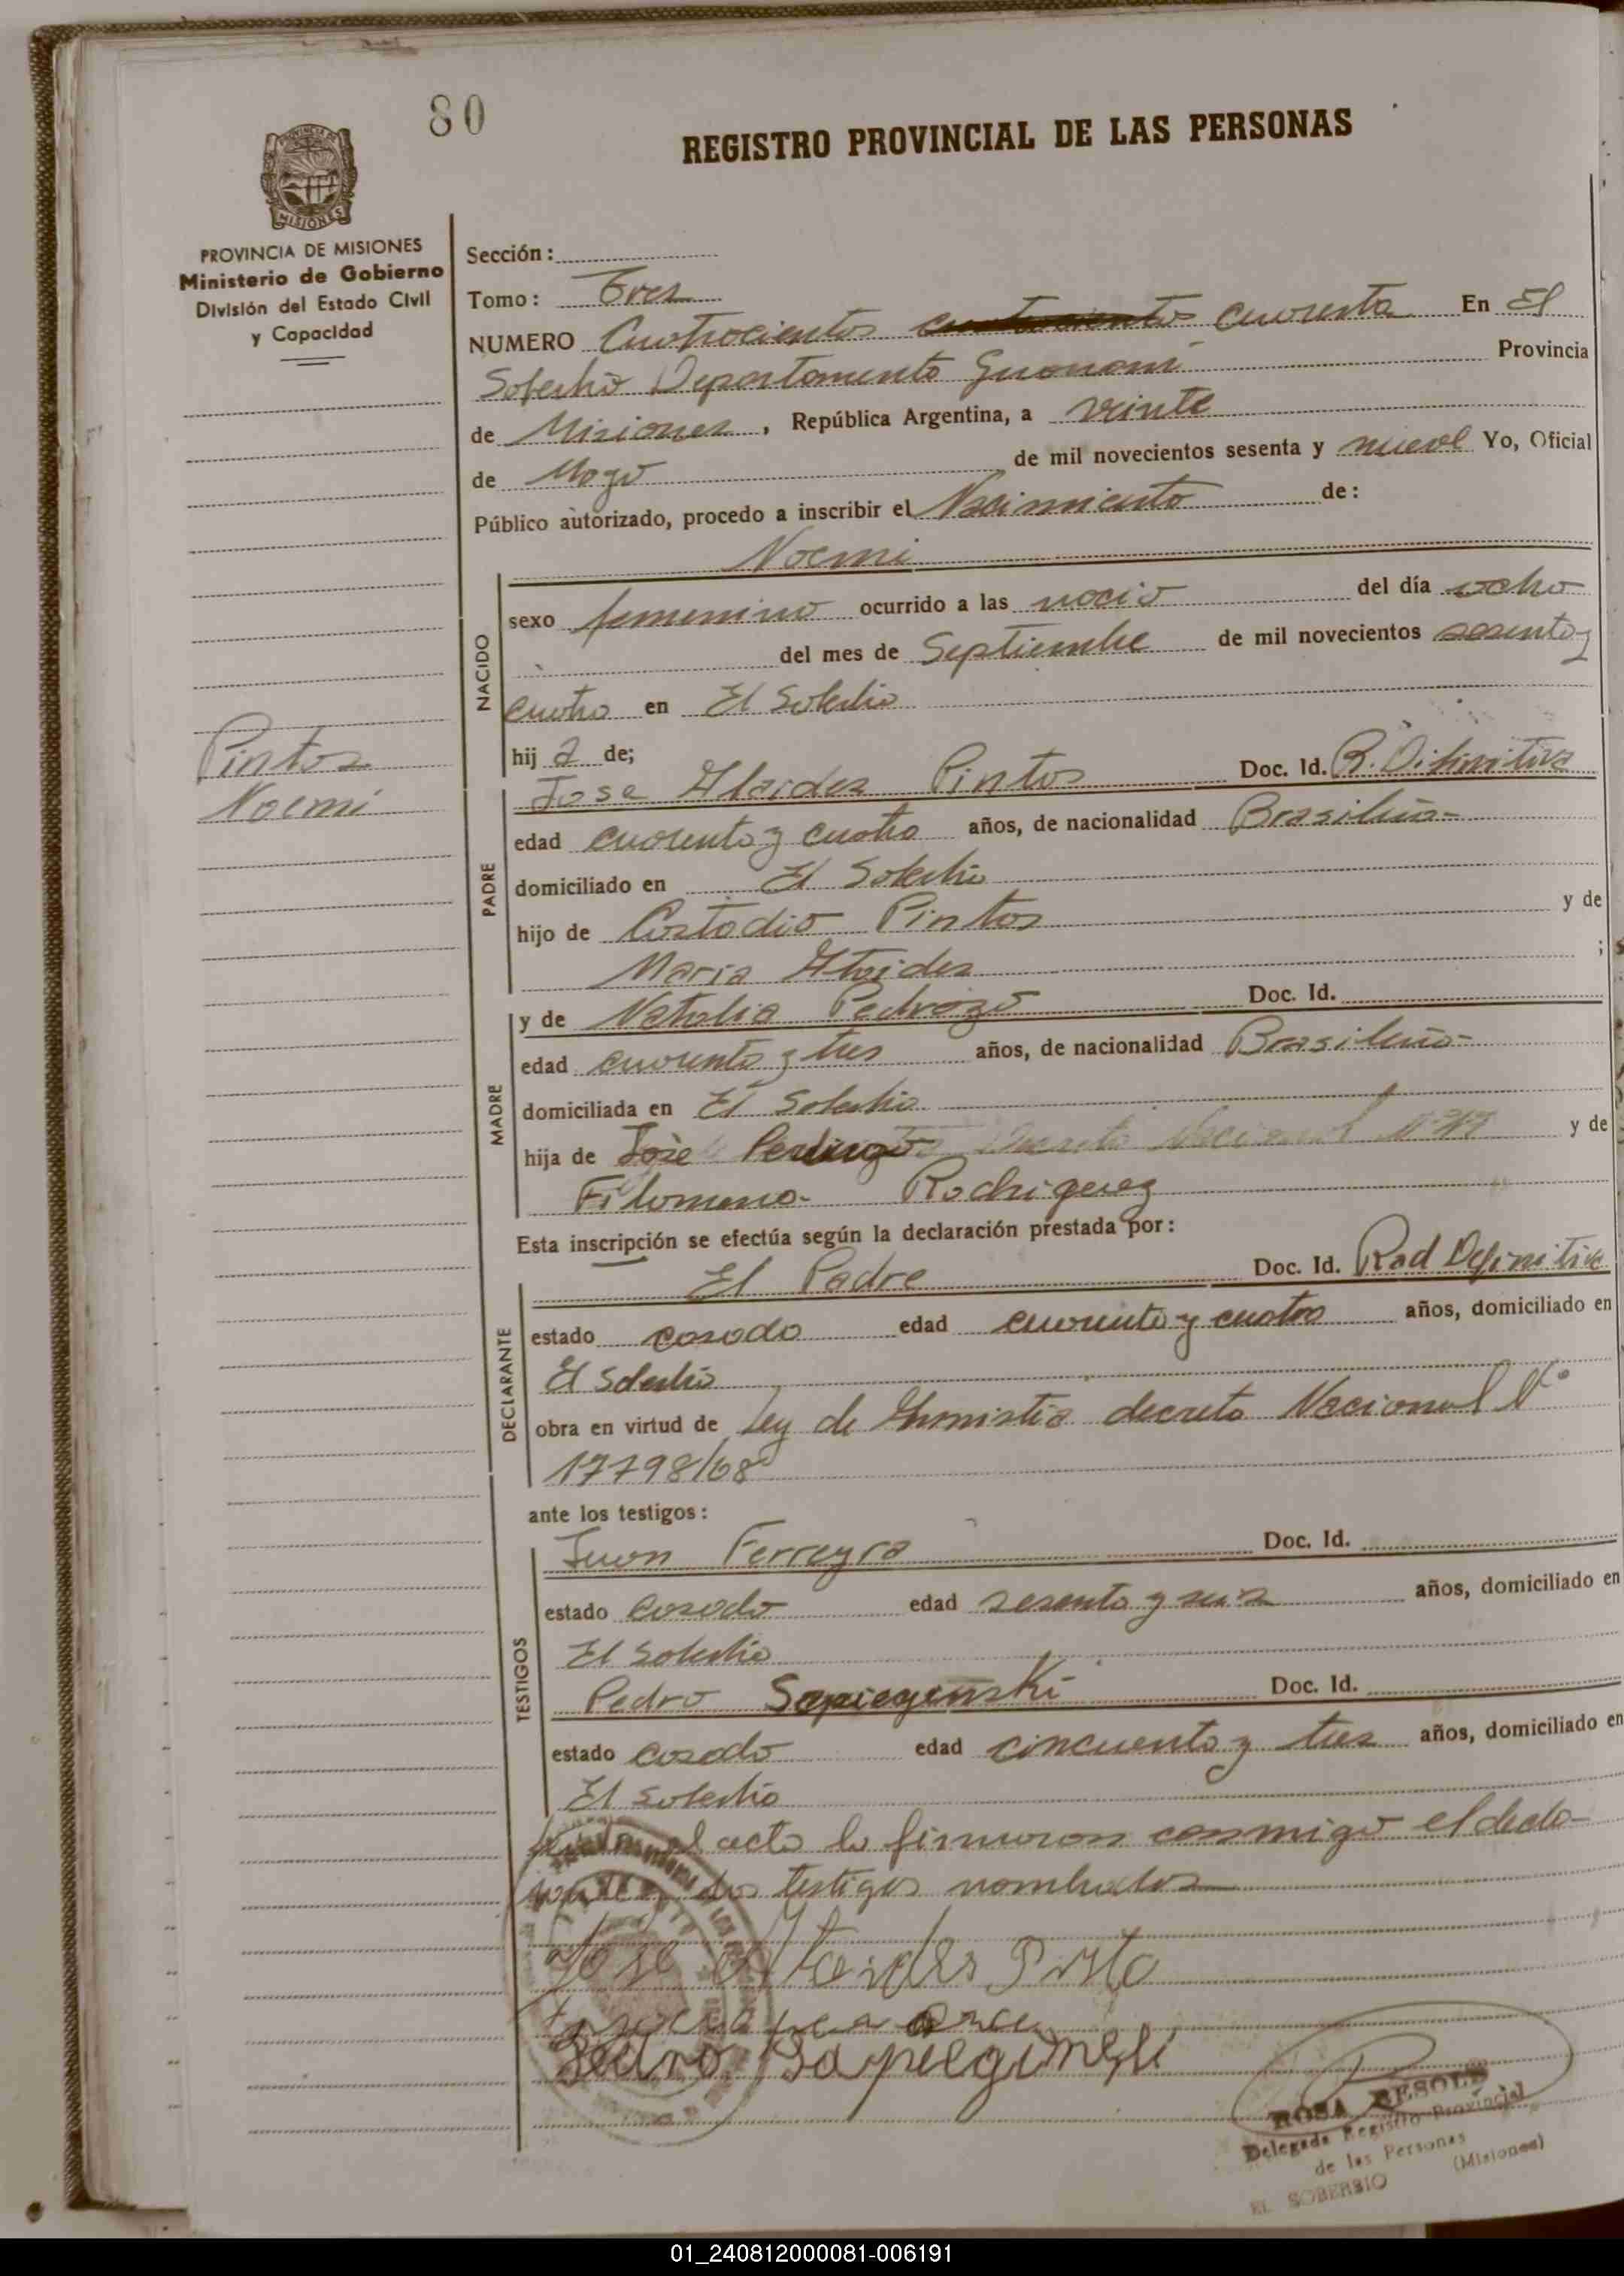 80
REGISTRO PROVINCIAL DE LAS PERSONAS
PROVINCIA DE
MISIONES
PROVINCIA DE MISIONES
Ministerio de Gobierno
División del Estado Civil
y Capacidad
Sección:
Tomo: Tres
NUMERO Cuatrocientos cuarenta En El
Soberbio Departamento Guarani Provincia
de Misiones, República Argentina, a veinte
de Mayo de mil novecientos sesenta y nueve Yo, Oficial
Público autorizado, procedo a inscribir el Nacimiento de:
Noemi
NACIDO
sexo femenino ocurrido a las del día ocho
del mes de Septiembre de mil novecientos sesenta y
cuatro en El Soberbio
hij a de;
Pintos
Noemi
PADRE
Jose Ataides Pintos Doc. Id. R. Difinitiva
edad cuarenta y cuatro años, de nacionalidad Brasileña-
domiciliado en El Soberbio
hijo de Costodio Pintos y de
Maria Ataides ;
MADRE
y de Natalia Pedrozo Doc. Id.
edad cuarenta y tres años, de nacionalidad Brasileña-
domiciliada en El Soberbio
hija de Josè Pedrozo y de
Filomena- Rodriguez
Esta inscripción se efectúa según la declaración prestada por:
DECLARANTE
El Padre Doc. Id. Rad Definitiva
estado casado edad cuarenta y cuatro años, domiciliado en
El Soberbio
obra en virtud de Ley de Amnistia decreto Nacional Nº
17798/68
ante los testigos:
TESTIGOS
Juan Ferreyra Doc. Id.
estado casado edad sesenta y seis años, domiciliado en
El Soberbio
Pedro Sapiegenski Doc. Id.
estado casado edad cincuenta y tres años, domiciliado en
El Soberbio
el acta la firmaron conmigo el decla-
rante y los testigos nombrados
Jose Ataides Pinto
Pedro Sapieginski
ROSA BESOLD
Delegada Registro Provincial
de las Personas
EL SOBERBIO (Misiones)
01_240812000081-006191